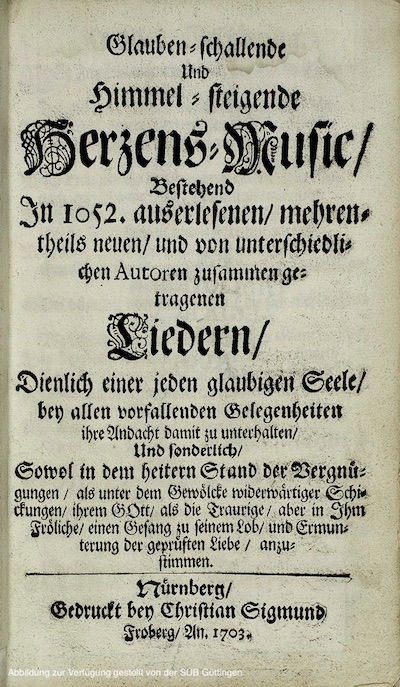 Glauben-schallende
Und
Himmel-steigende
Herzens-Music/
Bestehend
In 1052. auserlesenen/ mehren-
theils neuen/ und von unterschiedli-
chen Autoren zusammen ge-
tragenen
Liedern/
Dienlich einer jeden glaubigen Seele/
bey allen vorfallenden Gelegenheiten
ihre Andacht damit zu unterhalten/
Und sonderlich/
Sowol in dem heitern Stand der Vergnü-
gungen/ als unter dem Gewölcke widerwärtiger Schi-
ckungen/ ihrem GOtt/ als die Traurige/ aber in Ihm
Fröliche/ einen Gesang zu seinem Lob/ und Ermun-
terung der geprüften Liebe/ anzu-
stimmen.
Nürnberg/
Gedruckt bey Christian Sigmund
Froberg/ An. 1703.
Abbildung zur Verfügung gestellt von der SUB Göttingen